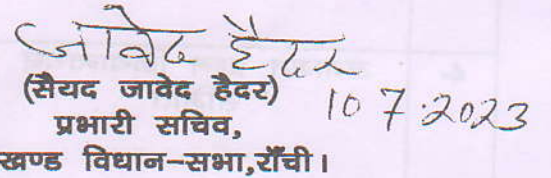 जावेद हैदर
(सैयद जावेद हैदर) 10 7.2023
प्रभारी सचिव,
खण्ड विधान-सभा,राँची।